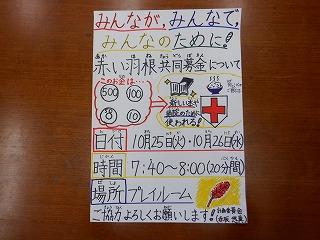 みんなが、みんなで、
みんなのために!
赤い羽根共同募金について
このお金は・・・
500 100
10
新しい本や
施設のために
使われる!
日付 10月25日(火)・10月26日(水)
時間 7:40〜8:00(20分間)
場所 プレイルーム
ご協力よろしくお願いします!
計画委員会